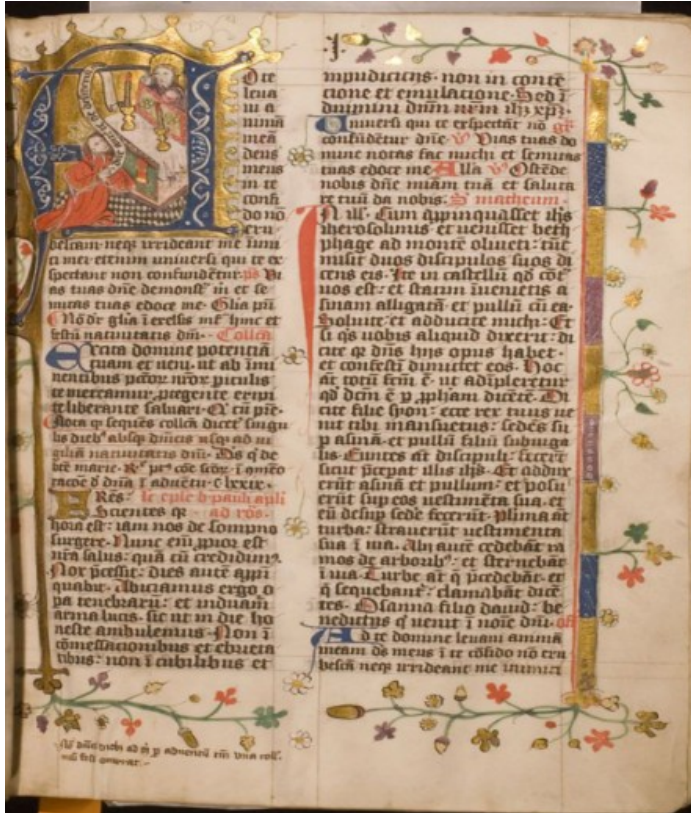 O te
leua
ui a
nimā
meā
deus
meus
in te
confi
do nō
eru
bescam neqꝫ irrideant me inimi
ci mei etenim uniuersi qui te ex
spectant non confundētur ps Vi
as tuas dne demonst m et se
mitas tuas edoce me Glīa p̄ri
Nō dr gl̄ia ī excelsis hinc et
festū natiuitatis dn̄i Collcā
Excita domine potentiā
tuam et ueni ut ab imi
nentibus pctōꝝ nr̄oꝝ piculis
te mereamur ꝓtegente eripi
te liberante saluari Q̇ cū pr̄e
collcā dicet singu
lis dieb absqꝫ dn̄icis usqꝫ ad ui
giliā natiuitatis dn̄i de
bt̄e marie
ī aduētu
FRēs le epl̄e b pauli apl̄i
Scientes qꝛ ad ro
hora est iam nos de sompno
surgere Nunc em̄ ꝓpior est
nr̄a salus quā cū credidim
Nox p̄cessit dies autē appī
quabit Abiciamus ergo o
pa tenebraꝝ et induam
arma lucis sic ut in die ho
neste ambulemus Non ī
cōmessacionibus et ebrieta
tibus non ī cubilibus et
inpudiciciis non in contē
cione et emulacione Sed ī
duimini dnm̄ nr̄m ih̄m xp̄m
Uniuersi qui te exspectāt nō gr
confūdētur dn̄e v Vias tuas do
mine notas fac michi et semitas
tuas edoce me Alla v Ostēde
nobis dn̄e mīam tuā et saluta
re tuū da nobis S matheum
IN ill Cum appīnquasset ih̄s
iherosolimis et uenisset beth
phage ad montē oliueti tūc
misit duos discipulos suos di
cens eis Ite in castellū qd cōt
uos est et statim inuenietis a
sinam alligatā et pullū cū ea
Soluite et adducite michi Et
si qs uobis aliquid dixerit di
cite qꝛ dn̄s hiis opus habet
et confestī dimittet eos Hoc
āt totū fcm̄ ē ut adīpleretur
qd dcm̄ ē ꝑ ꝓpham dicētē Di
cite filie syon ecce rex tuus ue
nit tibi mansuetus sedēs su
ꝑ asinā et pullū filiū subiuga
lis Euntes āt discipuli fecert
sicut p̄cepat illis ih̄s Et addux
erūt asinā et pullum et posu
erūt suꝑ eos uestimēta sua et
eū desuꝑ sedē fecerūt Plīma āt
turba strauerūt uestimenta
sua ī uia Alii autē cedebāt ra
mos de arborib et sternebāt
ī uia Turbe āt q p̄cedebāt et
q sequebāt clamabāt dicē
tes Osanna filio dauid be
nedictus q uenit ī noīe dn̄i of
Ad te domine leuaui animā
meam ds meus ī te cōfido nō eru
bescā neqꝫ irrideant me inimici